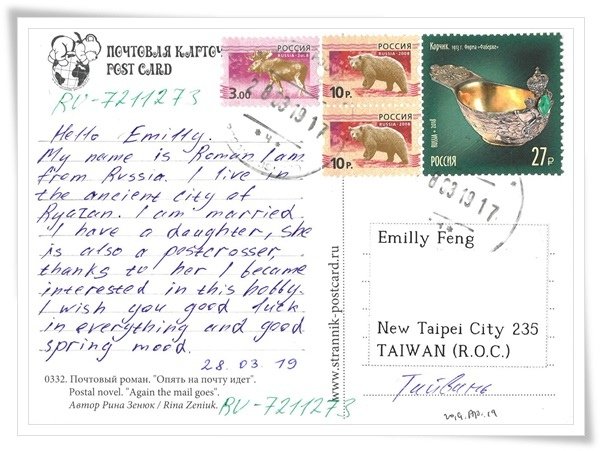 ПОЧТОВАЯ КАРТОЧ
POST CARD
RU-7211273
РОССИЯ
3.00
РОССИЯ
RUSSIA • 2008
10 р.
РОССИЯ
RUSSIA • 2008
10 р.
Корчик. 1913 г. Фирма «Фаберже»
RUSSIA • 2018
РОССИЯ
27₽
28 03 19 17
8 03 19 17
Hello Emilly.
My name is Roman I am
from Russia. I live in
the ancient city of
Ryazan. I am married
I have a daughter, she
is also a postcrosser,
thanks to her I became
interested in this hobby.
I wish you good luck
in everything and good
spring mood.
28.03.19
0332. Почтовый роман. "Опять на почту идет".
Postal novel. "Again the mail goes".
Автор Рина Зенюк / Rina Zeniuk.
RU-7211273
www.strannik-postcard.ru
Emilly Feng
New Taipei City 235
TAIWAN (R.O.C.)
Тайвань